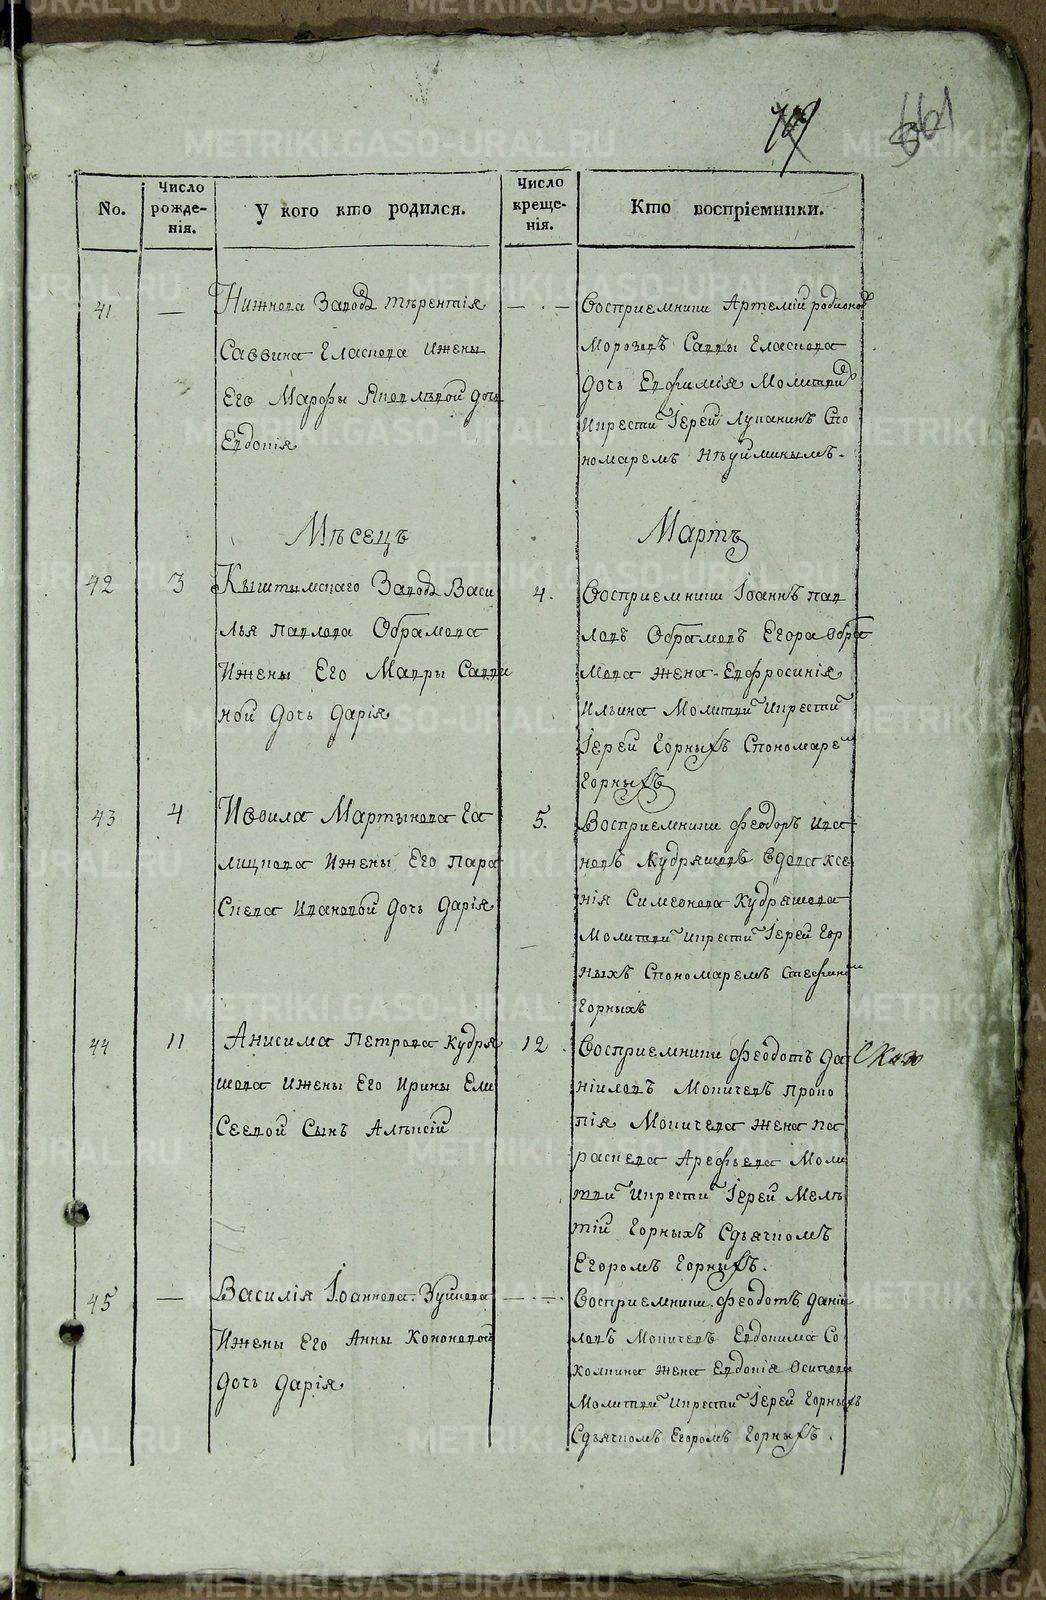 661
No.
Число рожде-нія.
У кого кто родился.
Число креще-нія.
Кто воспріемники.
41
—
Нижнева Завода Тѣрентія
Саввина Власпова Ижены
Его Марфы Яковлѣвой дочь
Евдокія
— · —
Восприемники Артемій родионов
Морозовъ Саввы Власпова
дочь Евфимія Молитвил
икрести Іерей Лупанинъ Спо
номаремъ Нѣуйминымъ.
Мѣсецъ
Мартъ
42
3
Кыштымскаго Завода Васи
лья Павлова Обрамова
Ижены Его Мавры Савви
ной дочь дарія
4.
Восприемники Іоаннъ пав
ловъ Обрамовъ Егора обра
мова жена Евфросинія
Ильина Молитви икрести
Іерей Горныхъ Спономаре
Горныхъ
43
4
Иовила Мартынова Га
лицкова Ижены Его пара
скева Ивановой дочь дарія
5.
Восприемники Феодоръ ива
новъ Кудряшовъ вдова ксе
нія Симеонова Кудряшова
Молитви икрести Іерей Гор
ныхъ Спономаремъ Стефаном
Горныхъ
44
11
Анисима Петрова Кудря
шова Ижены Его Ирины Ели
Сеевой Сынъ Алѣксій
12
Восприемники Феодотъ да
ніиловъ Мокичевъ Проко
пія Мокичева жена па
раскева Арефьева Моли
тви икрести Іерей Мелѣ
тій Горныхъ Сдьячкомъ
Егоромъ Горныхъ.
45
—
Василія Іоаннова Зуйкова
Ижены Его Анны Кононовой
дочь дарія
— · —
Восприемники Феодотъ даніи
ловъ Мокичевъ Евдокима Со
колкина жена Евдокія Осипова
Молитви икрести Іерей Горныхъ
Сдьячкомъ Егоромъ Горныхъ.
METRIKI.GASO-URAL.RU